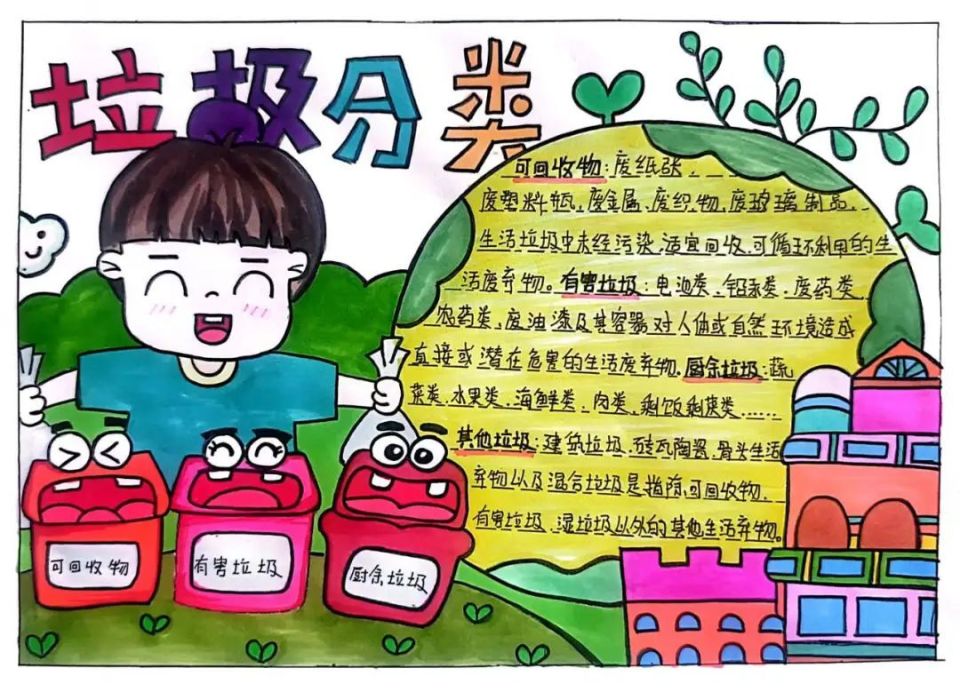 垃圾分类
可回收物:废纸张、
废塑料瓶、废金属、废织物、废玻璃制品、
生活垃圾中未经污染、适宜回收、可循环利用的生
活废弃物。有害垃圾:电池类、铅汞类、废药类、
农药类、废油漆及其容器对人体或自然环境造成
直接或潜在危害的生活废弃物。厨余垃圾:蔬
菜类、水果类、海鲜类、肉类、剩饭剩菜类……
其他垃圾:建筑垃圾、砖瓦陶瓷、骨头生活
弃物以及混合垃圾是指除可回收物、
有害垃圾、湿垃圾以外的其他生活弃物。
可回收物
有害垃圾
厨余垃圾